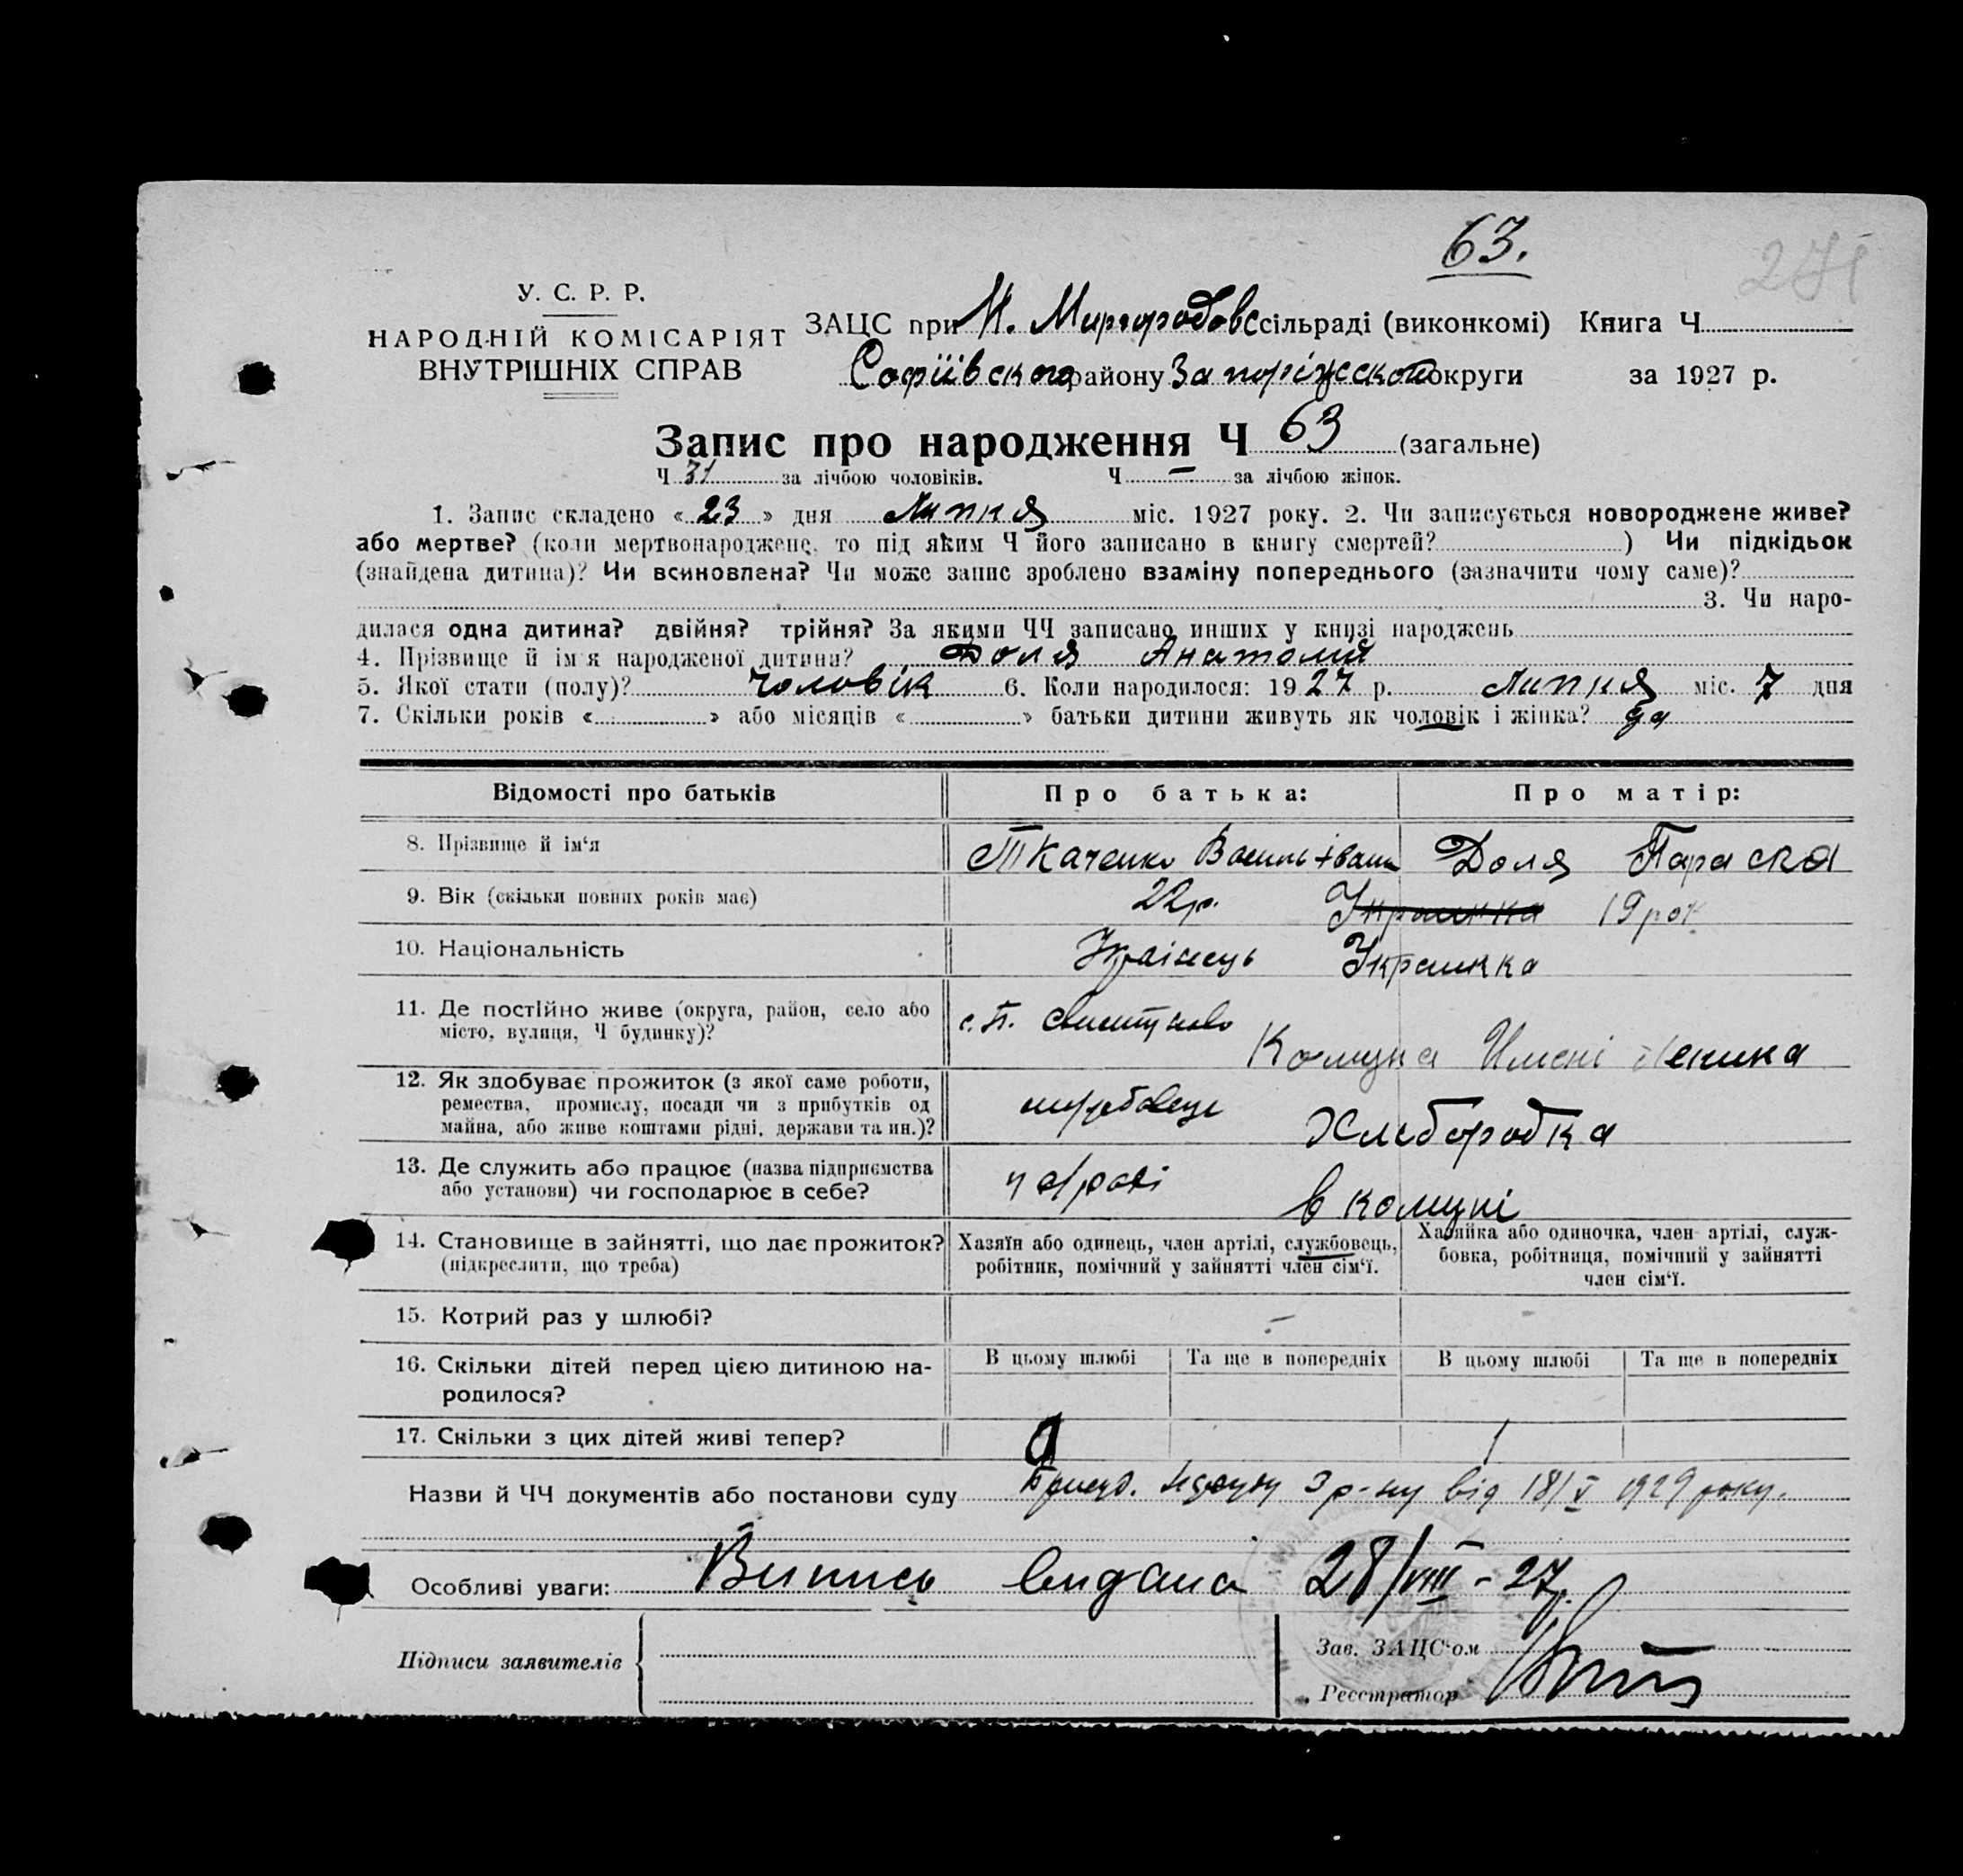 63.
271
У. С. Р. Р.
НАРОДНІЙ КОМІСАРІЯТ
ВНУТРІШНІХ СПРАВ
ЗАЦС при М. Миргородовс сільраді (виконкомі) Книга Ч
Софіівского району Запоріжской округи за 1927 р.
Запис про народження Ч 63 (загальне)
Ч 31 за лічбою чоловіків. Ч — за лічбою жінок.
1. Запис складено «23» дня Липня міс. 1927 року. 2. Чи записується новороджене живе?
або мертве? (коли мертвонароджене, то під яким Ч його записано в книгу смертей?) Чи підкідьок
(знайдена дитина)? Чи всиновлена? Чи може запис зроблено взаміну попереднього (зазначити чому саме)?
3. Чи наро-
дилася одна дитина? двійня? трійня? За якими ЧЧ записано инших у книзі народжень
4. Прізвище й ім'я народженої дитини? Доля Анатолій
5. Якої стати (полу)? Чоловік 6. Коли народилося: 1927 р. Липня міс. 7 дня
7. Скільки років « » або місяців « » батьки дитини живуть як чоловік і жінка? да
Відомості про батьків Про батька: Про матір:
8. Прізвище й ім'я Ткаченко Василь Іван Доля Параска
9. Вік (скільки повних років має) 22 р. Украинка 19 рок
10. Національність Украінець Украинка
11. Де постійно живе (округа, район, село або
місто, вулиця, Ч будинку)? с. П. Свистуново Комуна Имені Леника
12. Як здобуває прожиток (з якої саме роботи,
ремества, промислу, посади чи з прибутків од
майна, або живе коштами рідні, держави та ин.)? Хлеборобка
13. Де служить або працює (назва підприємства
або установи) чи господарює в себе? в комуні
14. Становище в зайнятті, що дає прожиток?
(підкреслити, що треба)
Хазяїн або одинець, член артілі, службовець,
робітник, помічний у зайнятті член сім'ї.
Хазяйка або одиночка, член артілі, служ-
бовка, робітниця, помічний у зайнятті
член сім'ї.
15. Котрий раз у шлюбі? —
16. Скільки дітей перед цією дитиною на-
родилося?
В цьому шлюбі Та ще в попередніх В цьому шлюбі Та ще в попередніх
17. Скільки з цих дітей живі тепер?
Назви й ЧЧ документів або постанови суду від 18/V 1929 року.
Особливі уваги: Випись видана 28/VIII - 27 р.
Підписи заявителів
Зав. ЗАЦС'ом
Реєстратор